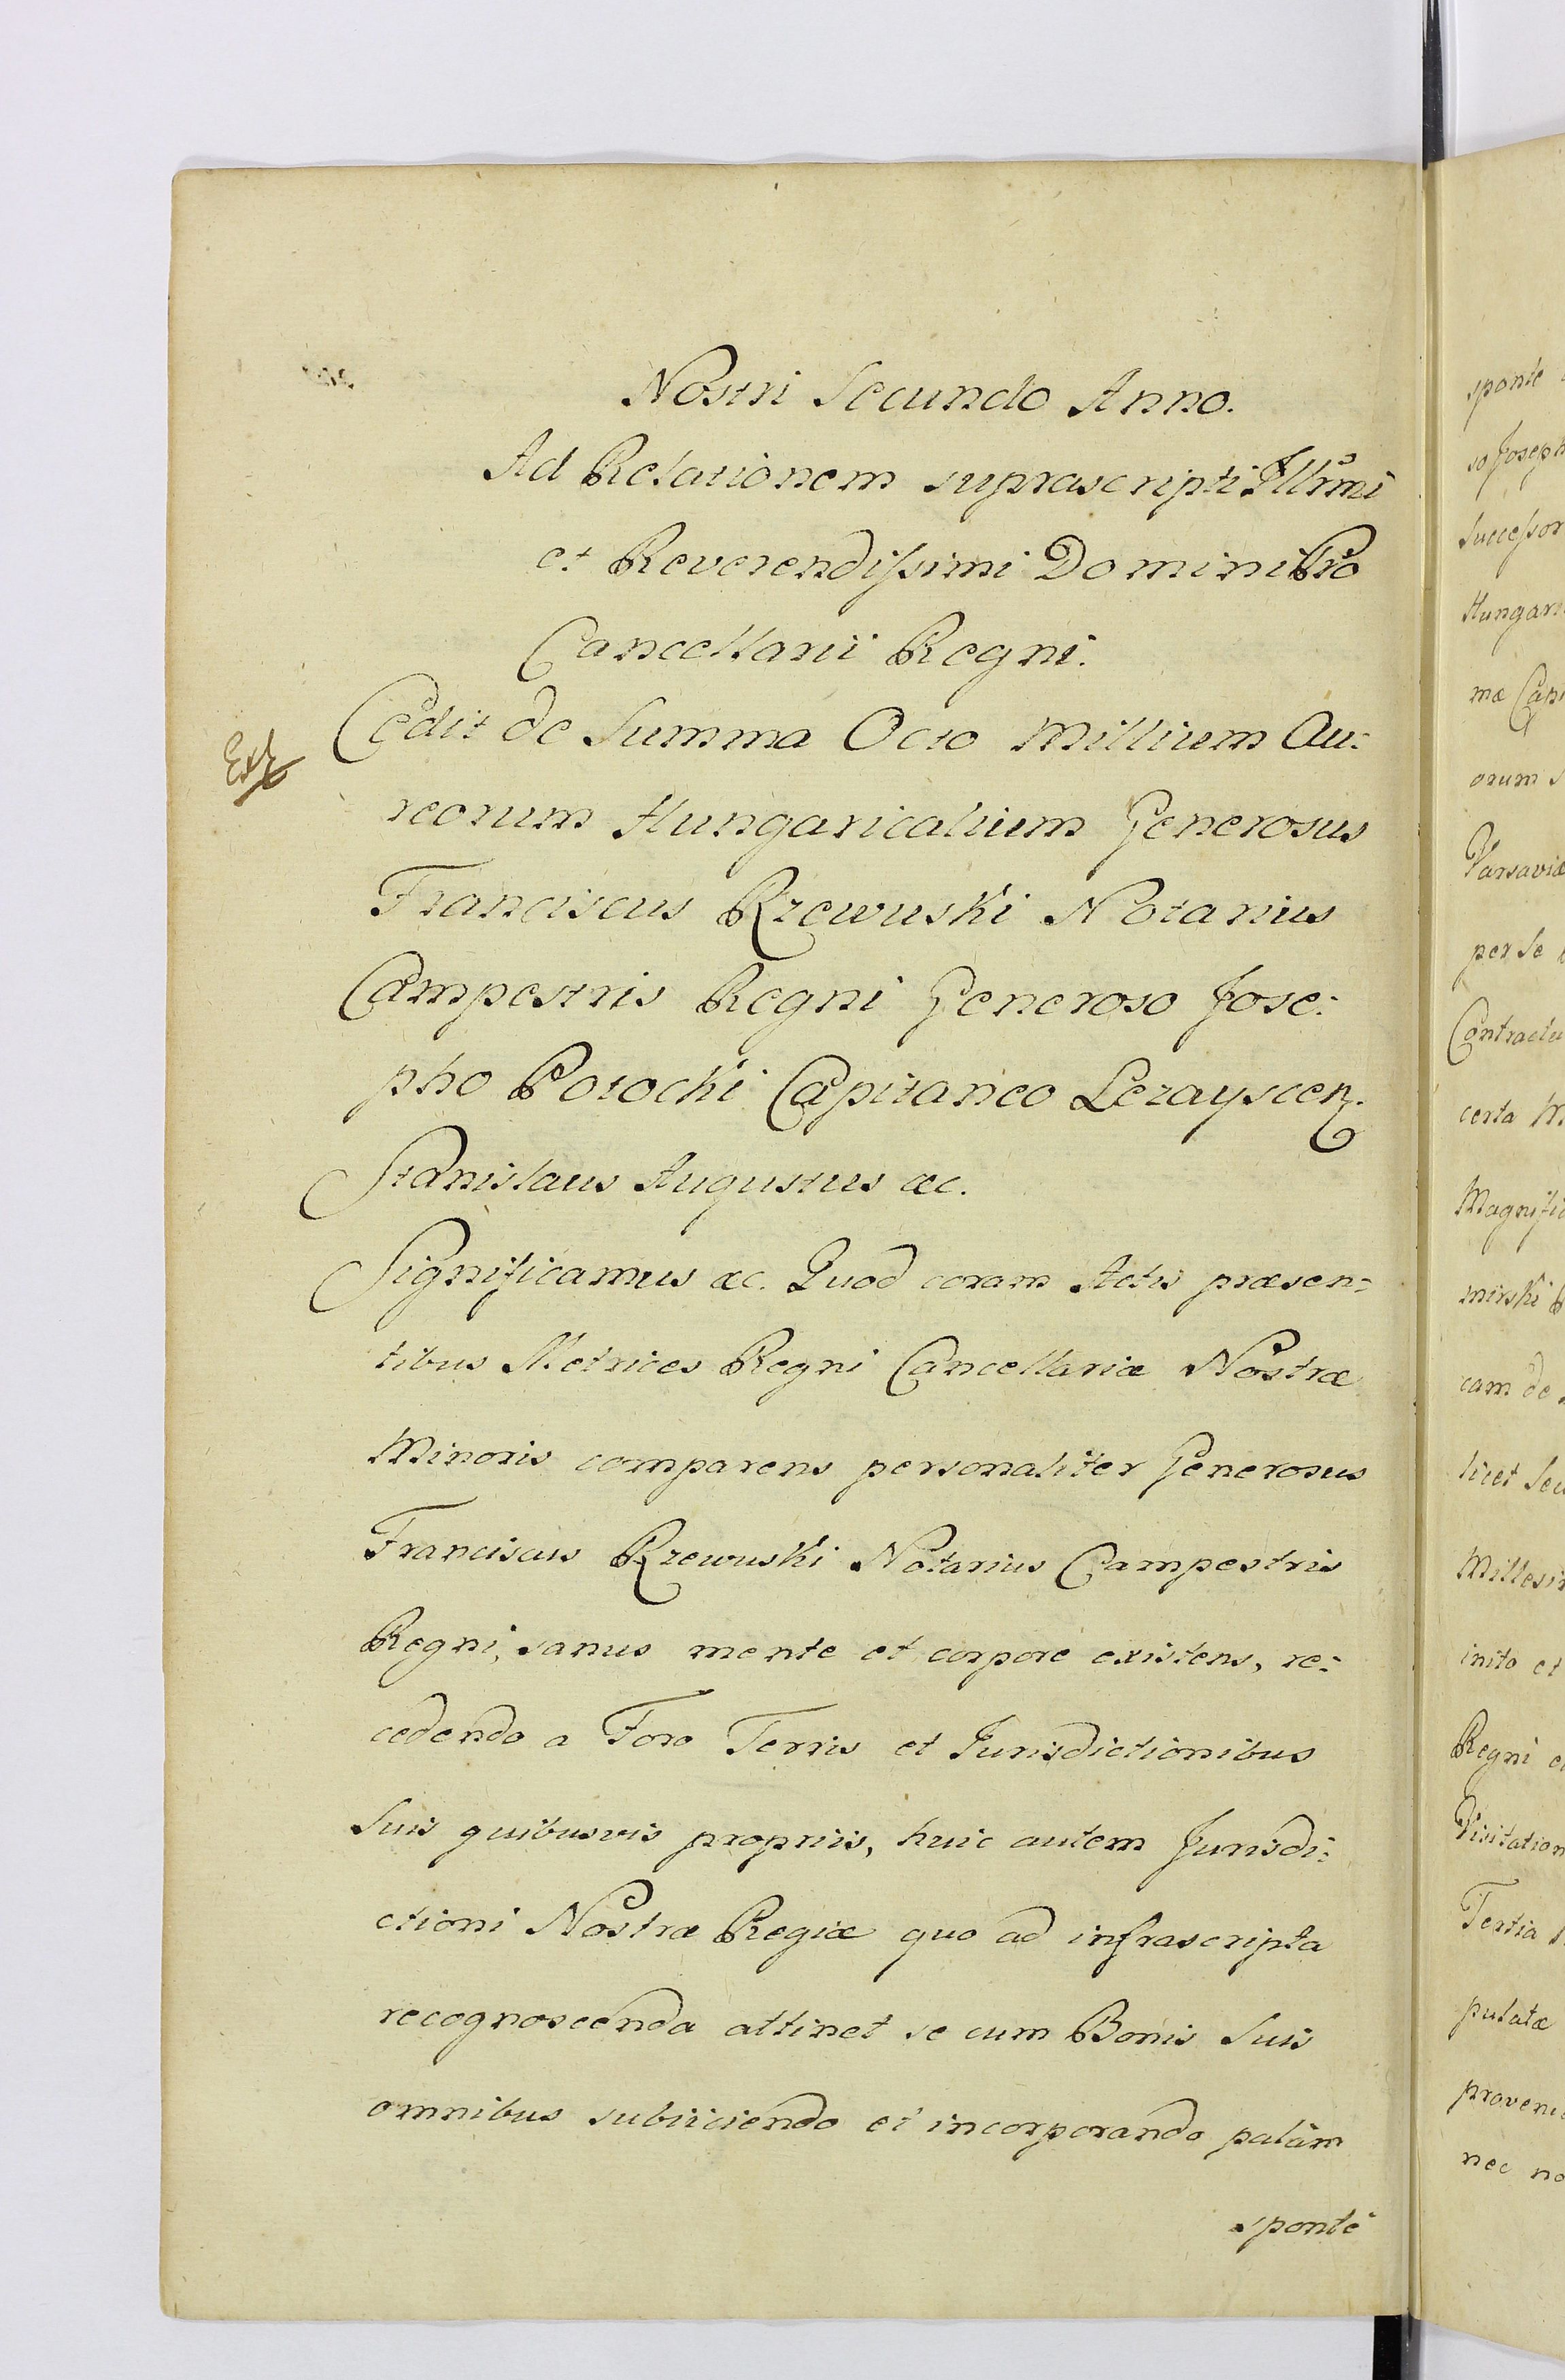 Nostri Secundo Anno.
Ad Relationem suprascripti Illrmi
et Reverendissimi Domini Pro
Cancellarii Regni.
Cedit de Summa Octo Millium Au:
reorum Hungaricalium Generosus
Franciscus Rzewuski Notarius
Campestris Regni Generoso Jose:
pho Potocki Capitaneo Lezayscen.
Stanislaus Augustus &c.
Significamus &c. Quod coram Actis præsen=
tibus Metrices Regni Cancellariæ Nostræ
Minoris comparens personaliter Generosus
Franciscus Rzewuski Notarius Campestris
Regni, sanus mente et corpore existens, re:
cedendo a Foro Terris et Jurisdictionibus
Suis quibusvis propriis, huic autem Jurisdi:
ctioni Nostræ Regiæ quo ad infrascripta
recognoscenda attinet se cum Bonis Suis
omnibus subiiciendo et incorporando palàm
spontè
sponte
so Joseph
Successor
Hungari
mæ Capi
orum s
Varsaviæ
per Se
Contractu
certa M
Magnifi
mirski
cam de
licet Se
Millesi
inito et
Regni
Visitation
Tertia
putatæ
proveni
nec no